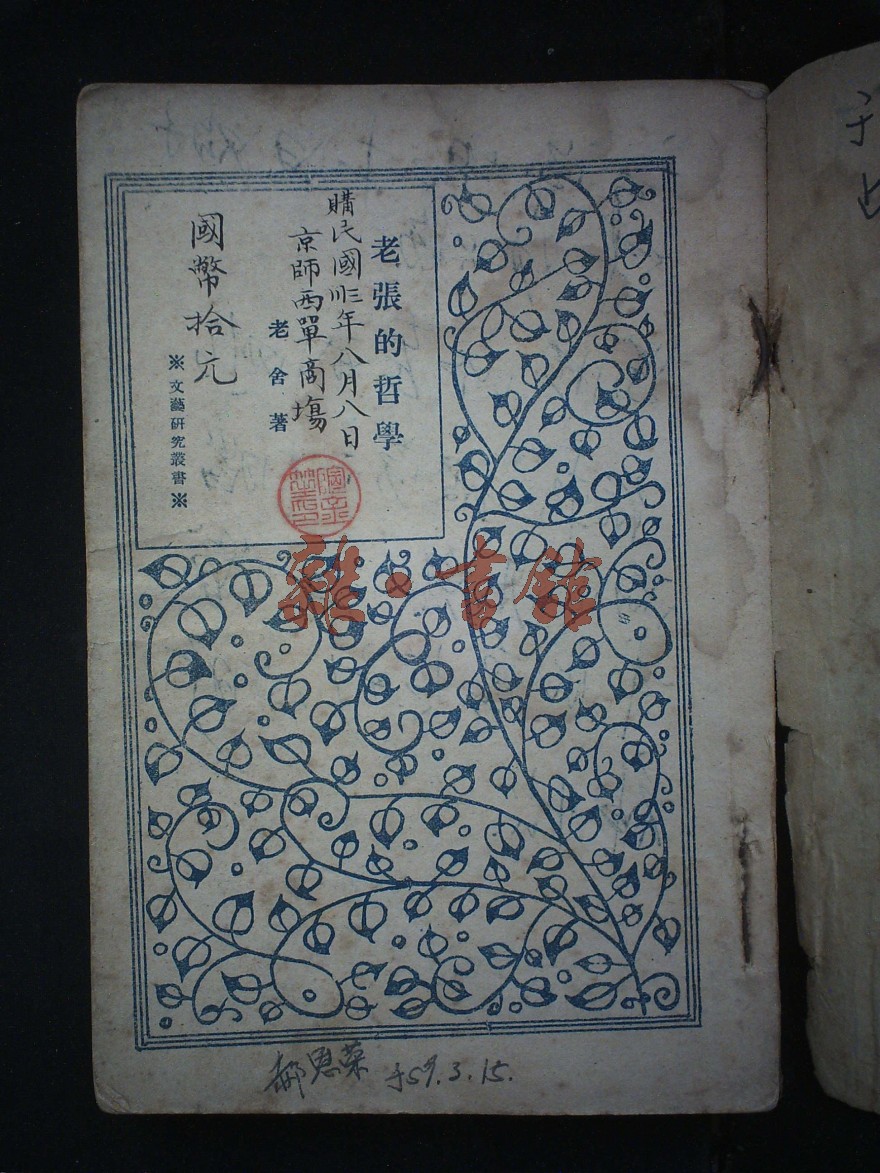 老張的哲學
購民國卅三年八月八日
京師西單商塲
老舍著
國幣拾元
※文藝研究叢書※
雜·書館
郝恩荣 于59.3.15.
于